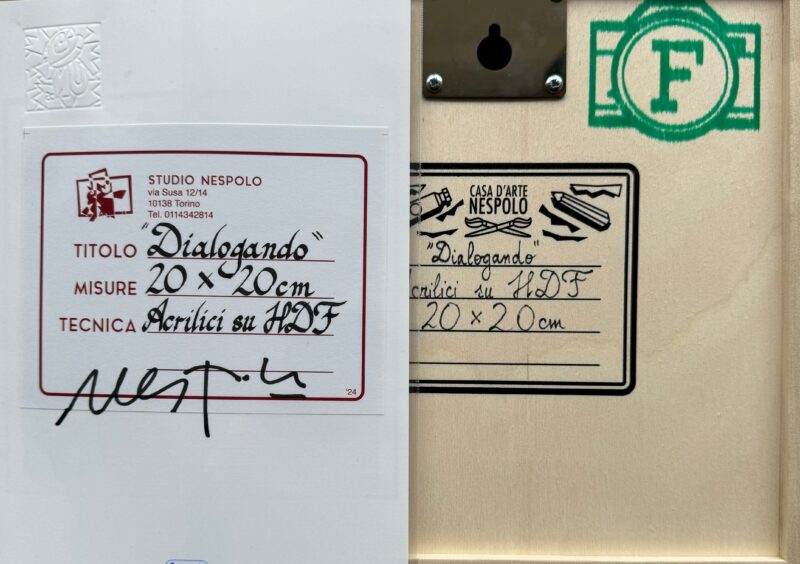 STUDIO NESPOLO
via Susa 12/14
10138 Torino
Tel. 0114342814
TITOLO "Dialogando"
MISURE 20 x 20 cm
TECNICA Acrilici su HDF
'24
F
CASA D'ARTE
NESPOLO
"Dialogando"
crilici su HDF
20 x 20 cm